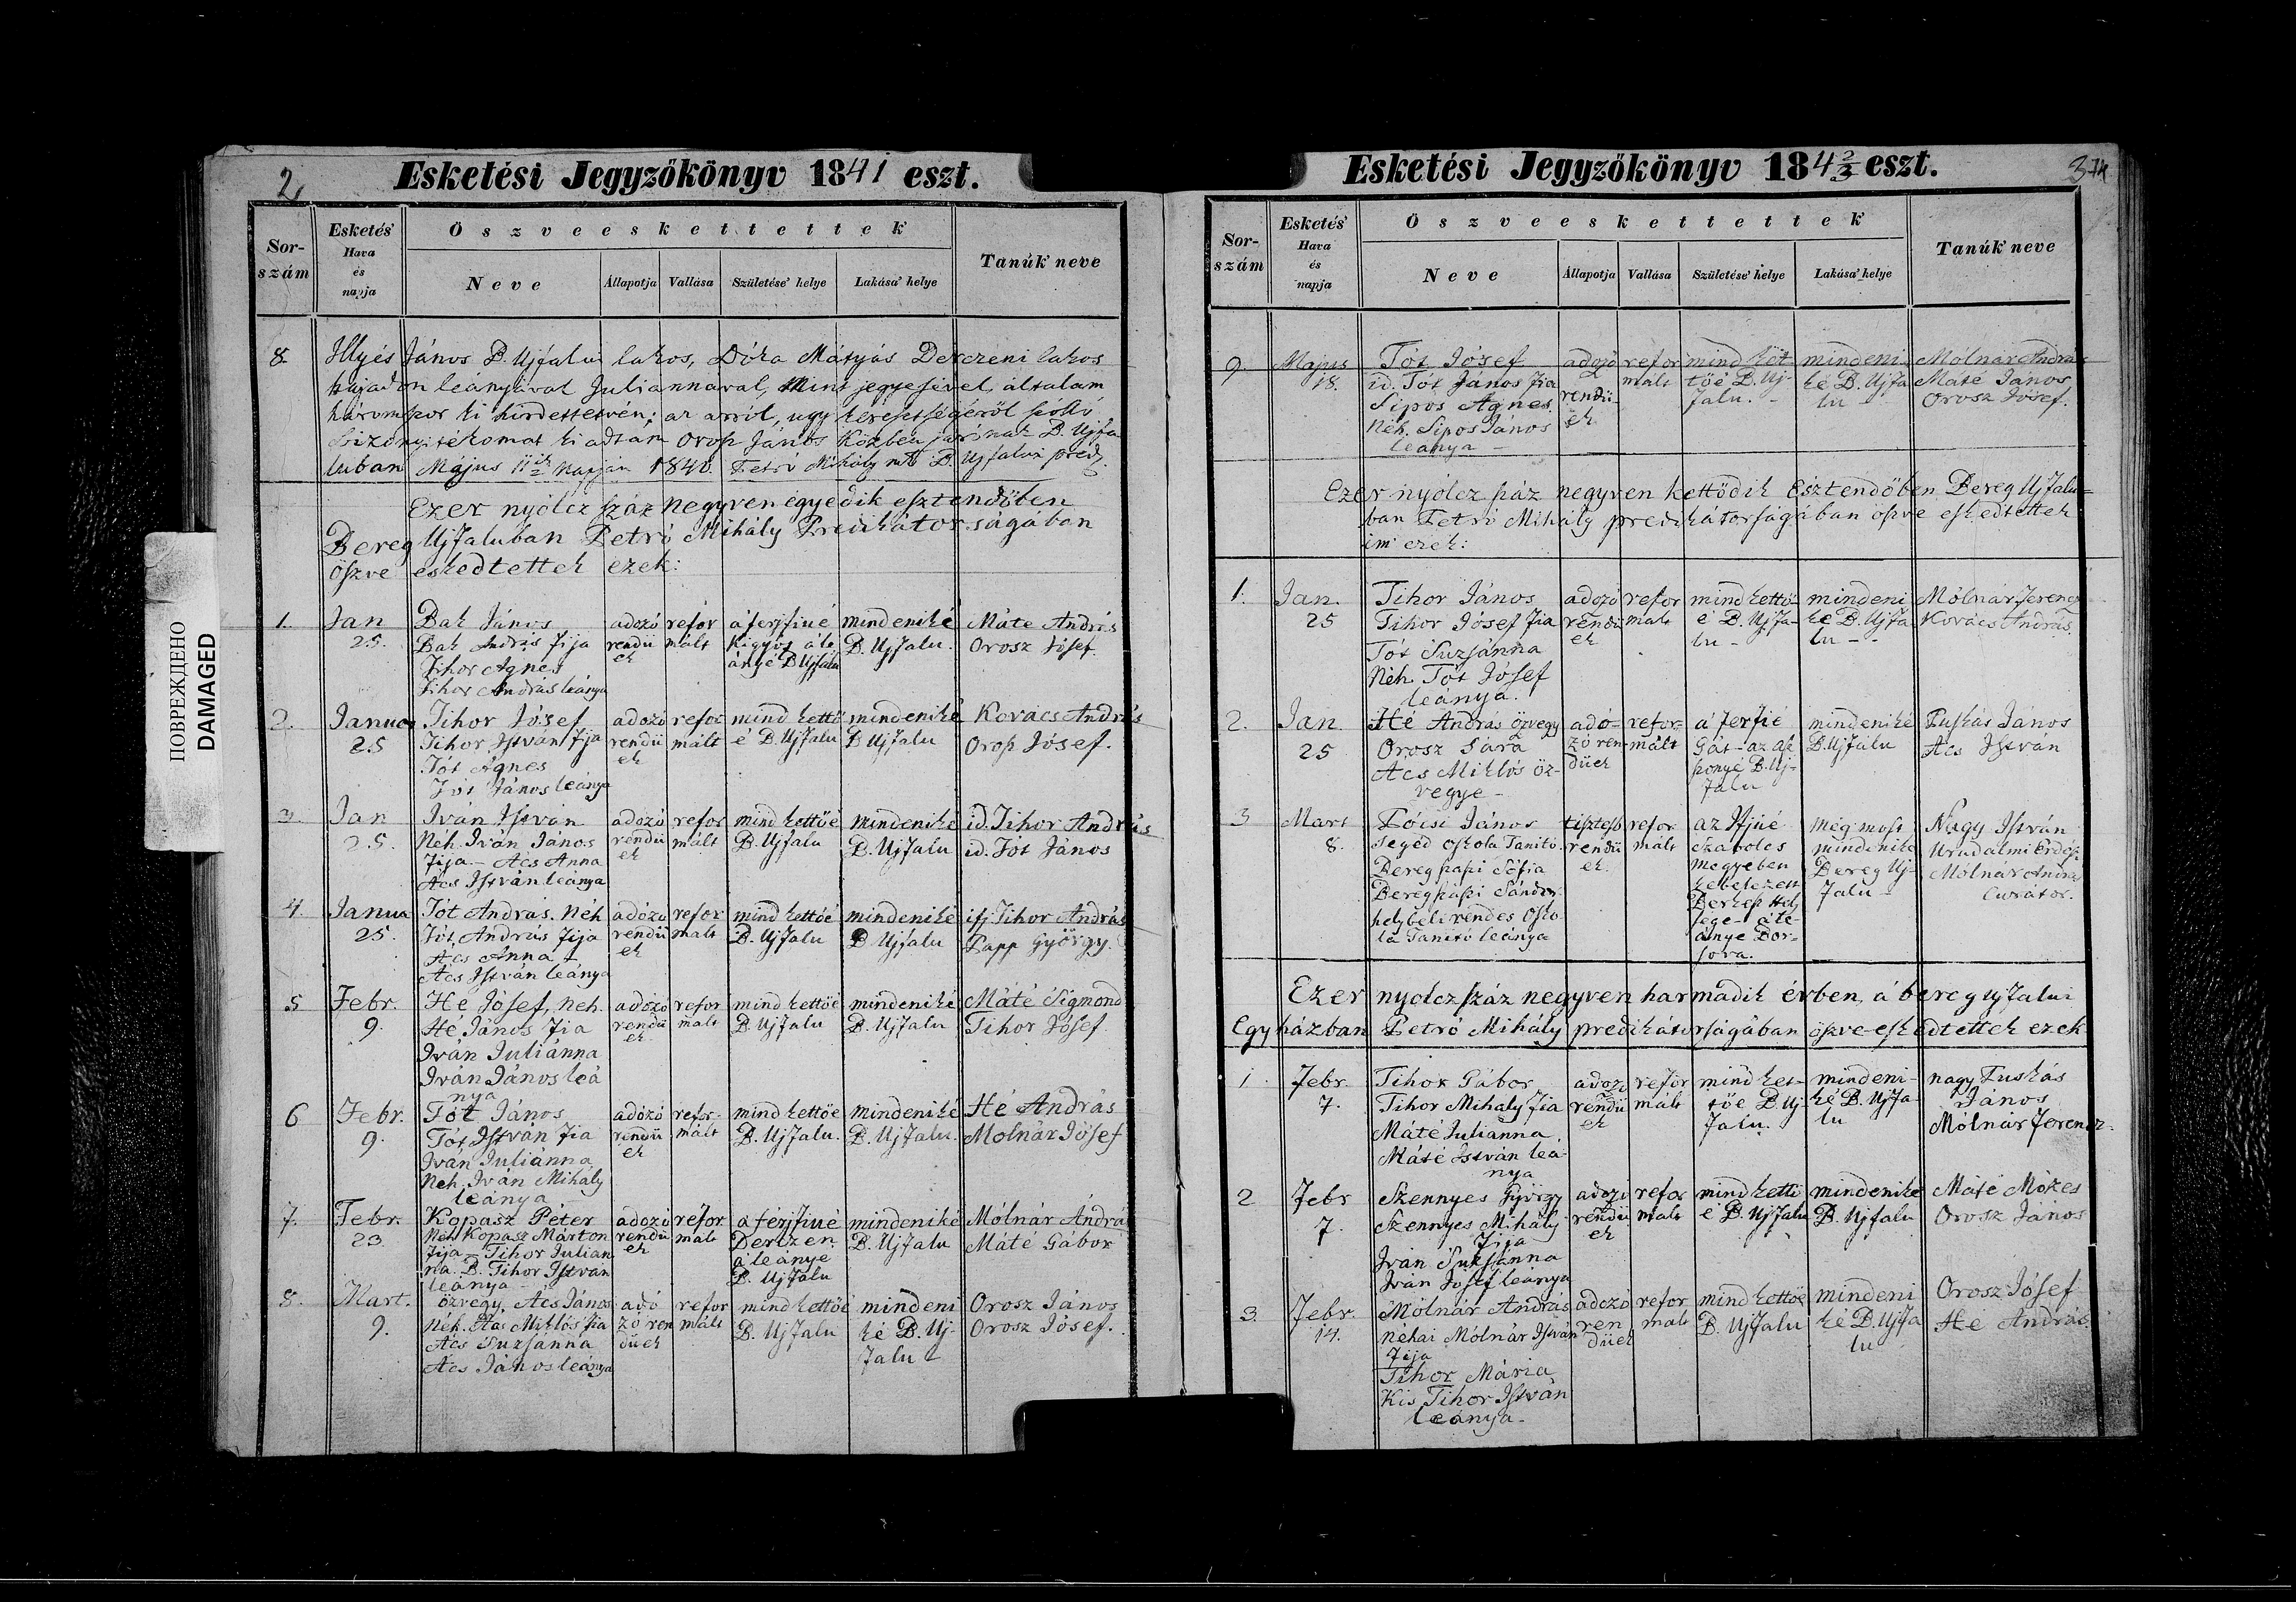 2
Esketési Jegyzőkönyv 1841 eszt.
Sor-
szám
Esketés'
Hava
és
napja
Öszveeskettettek
Neve
Állapotja
Vallása
Születése' helye
Lakása' helye
Tanúk' neve
8. Illyés János B. Ujfalui lakos, Dóka Mátyás Derczeni lakos
hajadon leányával Juliannával, Mint jegyesével, általam
háromszor ki hirdettetvén; az arról, ugy keresztségéről szólló
bizonyitékomat ki adtam Orosz János Közben járónak B. Ujfa
luban Május napján 1840. Petró Mihály mk B. Ujfalui préd.
Ezer nyólcz száz negyven egyedik esztendőben
Bereg Ujfaluban Petró Mihály Predikátorságában
öszve eskedtettek ezek:
1. Jan 25. Bak János
Bak András fija
Tihor Agnes
Tihor András leánya
adozó rendü ek
refor mált
a férjfiué Kigyós á le ányé B Ujfalu
mindeniké B. Ujfalu.
Máte András
Orosz Jósef.
2. Janua 25 Tihor Jósef
Tihor István fija
Tót Agnes
Tót János leánya
adozó rendü ek
refor mált
mind kettő é B. Ujfalu
mindeniké B Ujfalu
Kovács András
Orosz Jósef.
3. Jan 25. Iván István
Néh. Iván János
fija - Acs Anna
Acs István leánya
adozó rendü ek
refor mált
mind kettőé B. Ujfalu
mindeniké B. Ujfalu
id. Tihor András
id. Tót János
4. Janua 25. Tót András. Néh
Tót András fija
Acs Anna
Acs István leánya
adózó rendü ek
refor malt
mind kettőé B. Ujfalu
mindeniké B Ujfalu
ifj Tihor András
Papp György.
5 Febr. 9. Hé Jósef, Neh.
Hé János fia
Iván Juliánna
Iván János leá
nya
adozo rendü ek
refor malt
mind kettőé B. Ujfalu
mindeniké B. Ujfalu
Máté Sigmond
Tihor Jósef.
6 Febr. 9. Tót János
Tót István fia
Iván Juliánna
Neh. Iván Mihály
leánya
adózó rendü ek
refor- mált
mind kettőe B. Ujfalu.
mindeniké B. Ujfalu.
Hé András
Molnár Jósef
7. Febr. 23 Kopasz Péter
Néh Kopasz Márton
fija - Tihor Julian
na. B. Tihor István
leánya -
adozó rendü ek
refor malt
a férjfiué Dertzen á leánye B. Ujfalu
mindeniké B. Ujfalu
Mólnár Andrá
Máté Gábor
8. Mart. 9. özvegy. Acs János
Néh. Acs Miklós fia
Acs Suzsánna
Acs János leánya
adó zó ren düek
refor mált
mind kettőé B. Ujfalu
mindeni ké B. Uj- falu
Orosz János
Orosz Jósef.
Esketési Jegyzőkönyv 184 2/3 eszt.
Sor-
szám
Esketés'
Hava
és
napja
Öszveeskettettek
Neve
Állapotja
Vallása
Születése' helye
Lakása' helye
Tanúk' neve
9. Majus 18. Tót Jósef
id. Tót János fia
Sipos Agnes.
Néh. Sipos János
leánya -
adozó rendü- ek
refor mált
mind két tőé B. Uj- falu. -
mindeni ké B. Ujfa lu -
Mólnár András
Máté János
Orosz Jósef.
Ezer nyólcz száz negyven kettődik Esztendőben Bereg Ujfalu-
ban Petró Mihály predikátorságában öszve eskedtettek
im' ezek:
1. Jan. 25 Tihor János
Tihor Jósef fia
Tót Suzsánna
Néh. Tót Jósef
leánya.
adozó rendü ek
refor malt
mind kettő- é B. Ujfa- lu -
mindeni ké B. Ujfa lu - -
Mólnár Ferencz
Kovács András
2. Jan. 25 Hé András özvegy
Orosz Sára
Acs Miklós öz-
vegye -
adó- zó ren- düek
refor- mált
á ferfié Gát - az asz szonyé B. Uj- falu
mindeniké B. Ujfalu
Puskás János
Acs István
3 Mart 8. Pócsi János
Segéd oskola Tanitó.
Beregszászi Sófia
Beregszászi Sándor
helybéli rendes Osko
la Tanitó leánya
tisztesb rendü ek.
refor mált
az Ifjué Szabolcs Megyeben
Dor- sova.
még most mindenike Bereg Uj- falu -
Nagy István
Uradalmi Erdész
Mólnár András
Curátor.
Ezer nyolcz száz negyven harmadik évben, á bereg ujfalui
Egyházban Petró Mihály predikátorságában öszve-eskedtettek ezek
1. Febr. 7. Tihor Gábor
Tihor Mihály fia
Máté Julianna
Máté István leá
nya
adozó rendü ek
refor mált
mind ket- tőe B. Uj- falu.
mindeni- ké B. Ujfa- lu
nagy Puskás
János
Mólnár Ferencz.
2 Febr 7. Szennyes György
Szennyes Mihály
fija
Iván Suksánna
Iván Jósef leánya
adozó rendü ek
refor malt
mind kettő é B. Ujfalu
mindenike B. Ujfalu
Máté Mózes
Orosz János
3. Febr. 14. Mólnár András
néhai Mólnár István
fija
Tihor Mária
Kis Tihor István
leánya -
adozó ren düek
refor malt
mind kettőe B. Ujfalu
mindeni ké B. Ujfa lu
Orosz Jósef
Hé András.
ПОВРЕЖДЕНО
DAMAGED